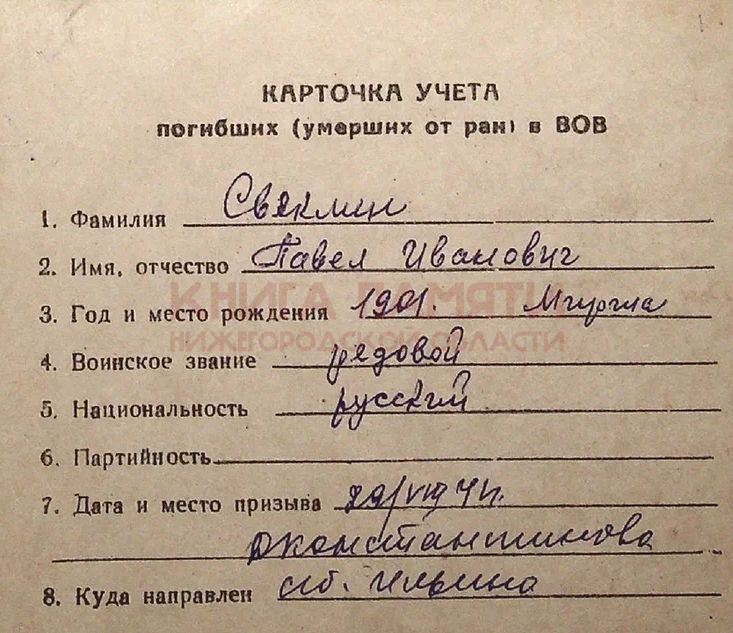 КАРТОЧКА УЧЕТА
погибших (умерших от ран) в ВОВ
1. Фамилия Свяклин
2. Имя, отчество Павел Иванович
КНИГА ПАМЯТИ
3. Год и место рождения 1901.
НИЖЕГОРОДСКОЙ ОБЛАСТИ
4. Воинское звание редовой
5. Национальность русский
6. Партийность
7. Дата и место призыва
8. Куда направлен Ильина